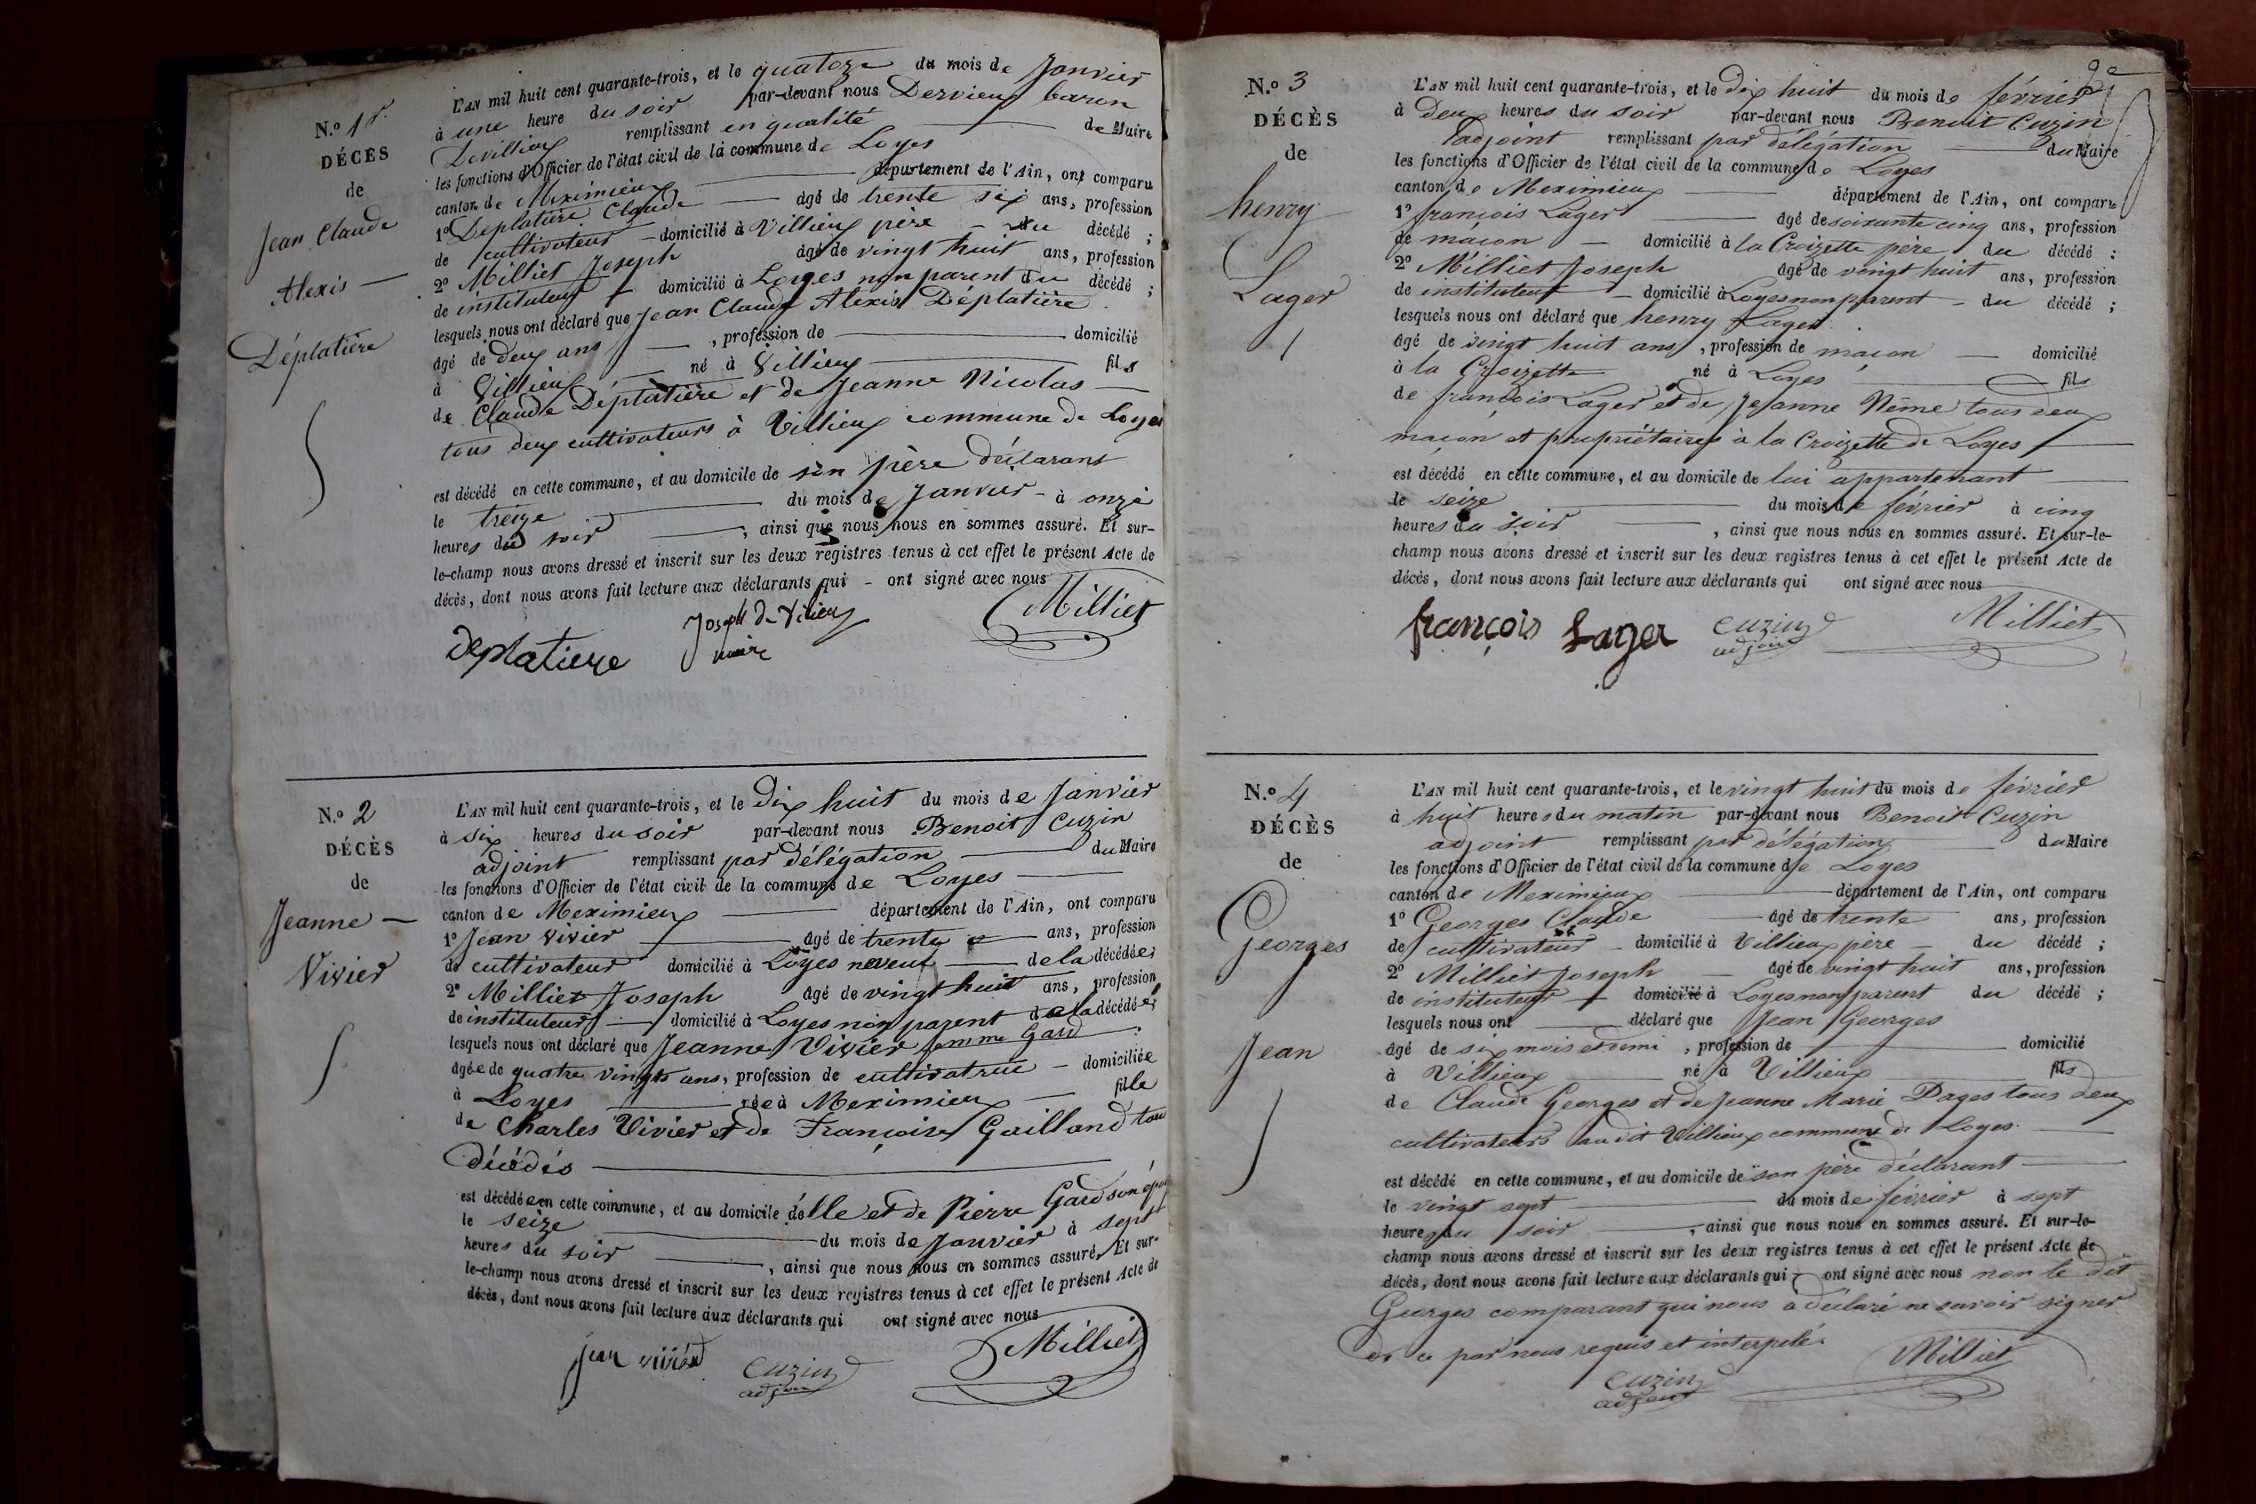 N.º 1er
DÉCÈS
de
Jean Claude
Alexis —
Déplatière
L'AN mil huit cent quarante-trois, et le quatorze du mois de Janvier
à une heure du soir par-devant nous Dervieux baron
Devillieu remplissant en qualité de Maire
les fonctions d'Officier de l'état civil de la commune de Loyes
canton de Meximieux département de l'Ain, ont comparu
1º Deplatière Claude âgé de trente six ans, profession
de cultivateur domicilié à Villieux père du décédé ;
2º Milliet Joseph âgé de vingt huit ans, profession
de instituteur domicilié à Loyes non parent du décédé ;
lesquels nous ont déclaré que Jean Claude Alexis Déplatière
âgé de deux ans , profession de domicilié
à Villieux né à Villieux fils
de Claude Déplatière et de Jeanne Nicolas
tous deux cultivateurs à Villieux commune de Loyes
est décédé en cette commune, et au domicile de son père déclarant
le treize du mois de Janvier à onze
heures du soir , ainsi que nous nous en sommes assuré. Et sur-
le-champ nous avons dressé et inscrit sur les deux registres tenus à cet effet le présent Acte de
décès, dont nous avons fait lecture aux déclarants qui ont signé avec nous
deplatiere Joseph de Villieu Milliet
maire
N.º 2
DÉCÈS
de
Jeanne —
Vivier
L'AN mil huit cent quarante-trois, et le Dix huit du mois de Janvier
à six heures du soir par-devant nous Benoit Cuzin
adjoint remplissant par délégation du Maire
les fonctions d'Officier de l'état civil de la commune de Loyes
canton de Meximieux département de l'Ain, ont comparu
1º Jean Vivier âgé de trente ans, profession
de cultivateur domicilié à Loyes neveu de la décédée ;
2º Milliet Joseph âgé de vingt huit ans, profession
de instituteur domicilié à Loyes non parent de la décédée ;
lesquels nous ont déclaré que Jeanne Vivier femme Gard
âgée de quatre vingts ans, profession de cultivatrice domiciliée
à Loyes née à Meximieux fille
de Charles Vivier et de Françoise Gailland tous
décédés
est décédée en cette commune, et au domicile d'elle et de Pierre Gard son époux
le seize du mois de Janvier à sept
heures du soir , ainsi que nous nous en sommes assuré. Et sur-
le-champ nous avons dressé et inscrit sur les deux registres tenus à cet effet le présent Acte de
décès, dont nous avons fait lecture aux déclarants qui ont signé avec nous
jean vivier Cuzin Milliet
adjoint
N.º 3
DÉCÈS
de
henry
Lager
L'AN mil huit cent quarante-trois, et le dix huit du mois de février
à Deux heures du soir par-devant nous Benoit Cuzin
adjoint remplissant par délégation du Maire
les fonctions d'Officier de l'état civil de la commune de Loyes
canton de Meximieux département de l'Ain, ont comparu
1º françois Lager âgé de soixante cinq ans, profession
de maçon domicilié à la Croizette père du décédé ;
2º Milliet Joseph âgé de vingt huit ans, profession
de instituteur domicilié à Loyes non parent du décédé ;
lesquels nous ont déclaré que henry Lager
âgé de vingt huit ans , profession de maçon domicilié
à la Croizette né à Loyes fils
de françois Lager et de Jeanne Nême tous deux
maçon et propriétaires à la Croizette de Loyes
est décédé en cette commune, et au domicile de lui appartenant
le seize du mois de février à cinq
heures du soir , ainsi que nous nous en sommes assuré. Et sur-le-
champ nous avons dressé et inscrit sur les deux registres tenus à cet effet le présent Acte de
décès, dont nous avons fait lecture aux déclarants qui ont signé avec nous
françois Lager Cuzin Milliet
adjoint
N.º 4
DÉCÈS
de
Georges
Jean
L'AN mil huit cent quarante-trois, et le vingt huit du mois de février
à huit heures du matin par-devant nous Benoit Cuzin
adjoint remplissant par délégation du Maire
les fonctions d'Officier de l'état civil de la commune de Loyes
canton de Meximieux département de l'Ain, ont comparu
1º Georges Claude âgé de trente ans, profession
de cultivateur domicilié à Villieux père du décédé ;
2º Milliet Joseph âgé de vingt huit ans, profession
de instituteur domicilié à Loyes non parent du décédé ;
lesquels nous ont déclaré que Jean Georges
âgé de six mois et demi , profession de domicilié
à Villieux né à Villieux fils
de Claude Georges et de Jeanne Marie Pages tous deux
cultivateurs audit Villieux commune de Loyes
est décédé en cette commune, et au domicile de son père déclarant
le vingt sept du mois de février à sept
heures du soir , ainsi que nous nous en sommes assuré. Et sur-le-
champ nous avons dressé et inscrit sur les deux registres tenus à cet effet le présent Acte de
décès, dont nous avons fait lecture aux déclarants qui ont signé avec nous non le dit
Georges comparant qui nous a déclaré ne savoir signer
de ce par nous requis et interpelé
Cuzin Milliet
adjoint